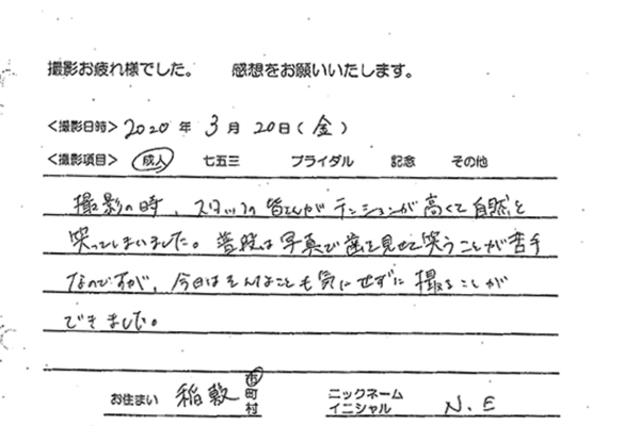 撮影お疲れ様でした。　感想をお願いいたします。
<撮影日時> 2020 年 3 月 20 日 ( 金 )
<撮影項目> 成人　七五三　ブライダル　記念　その他
撮影の時、スタッフの皆さんがテンションが高くて自然と
笑ってしまいました。普段は写真で歯を見せて笑うことが苦手
なのですが、今日はそんなことも気にせずに撮ることが
できました。
お住まい 稲敷 市町村　ニックネーム イニシャル N.E